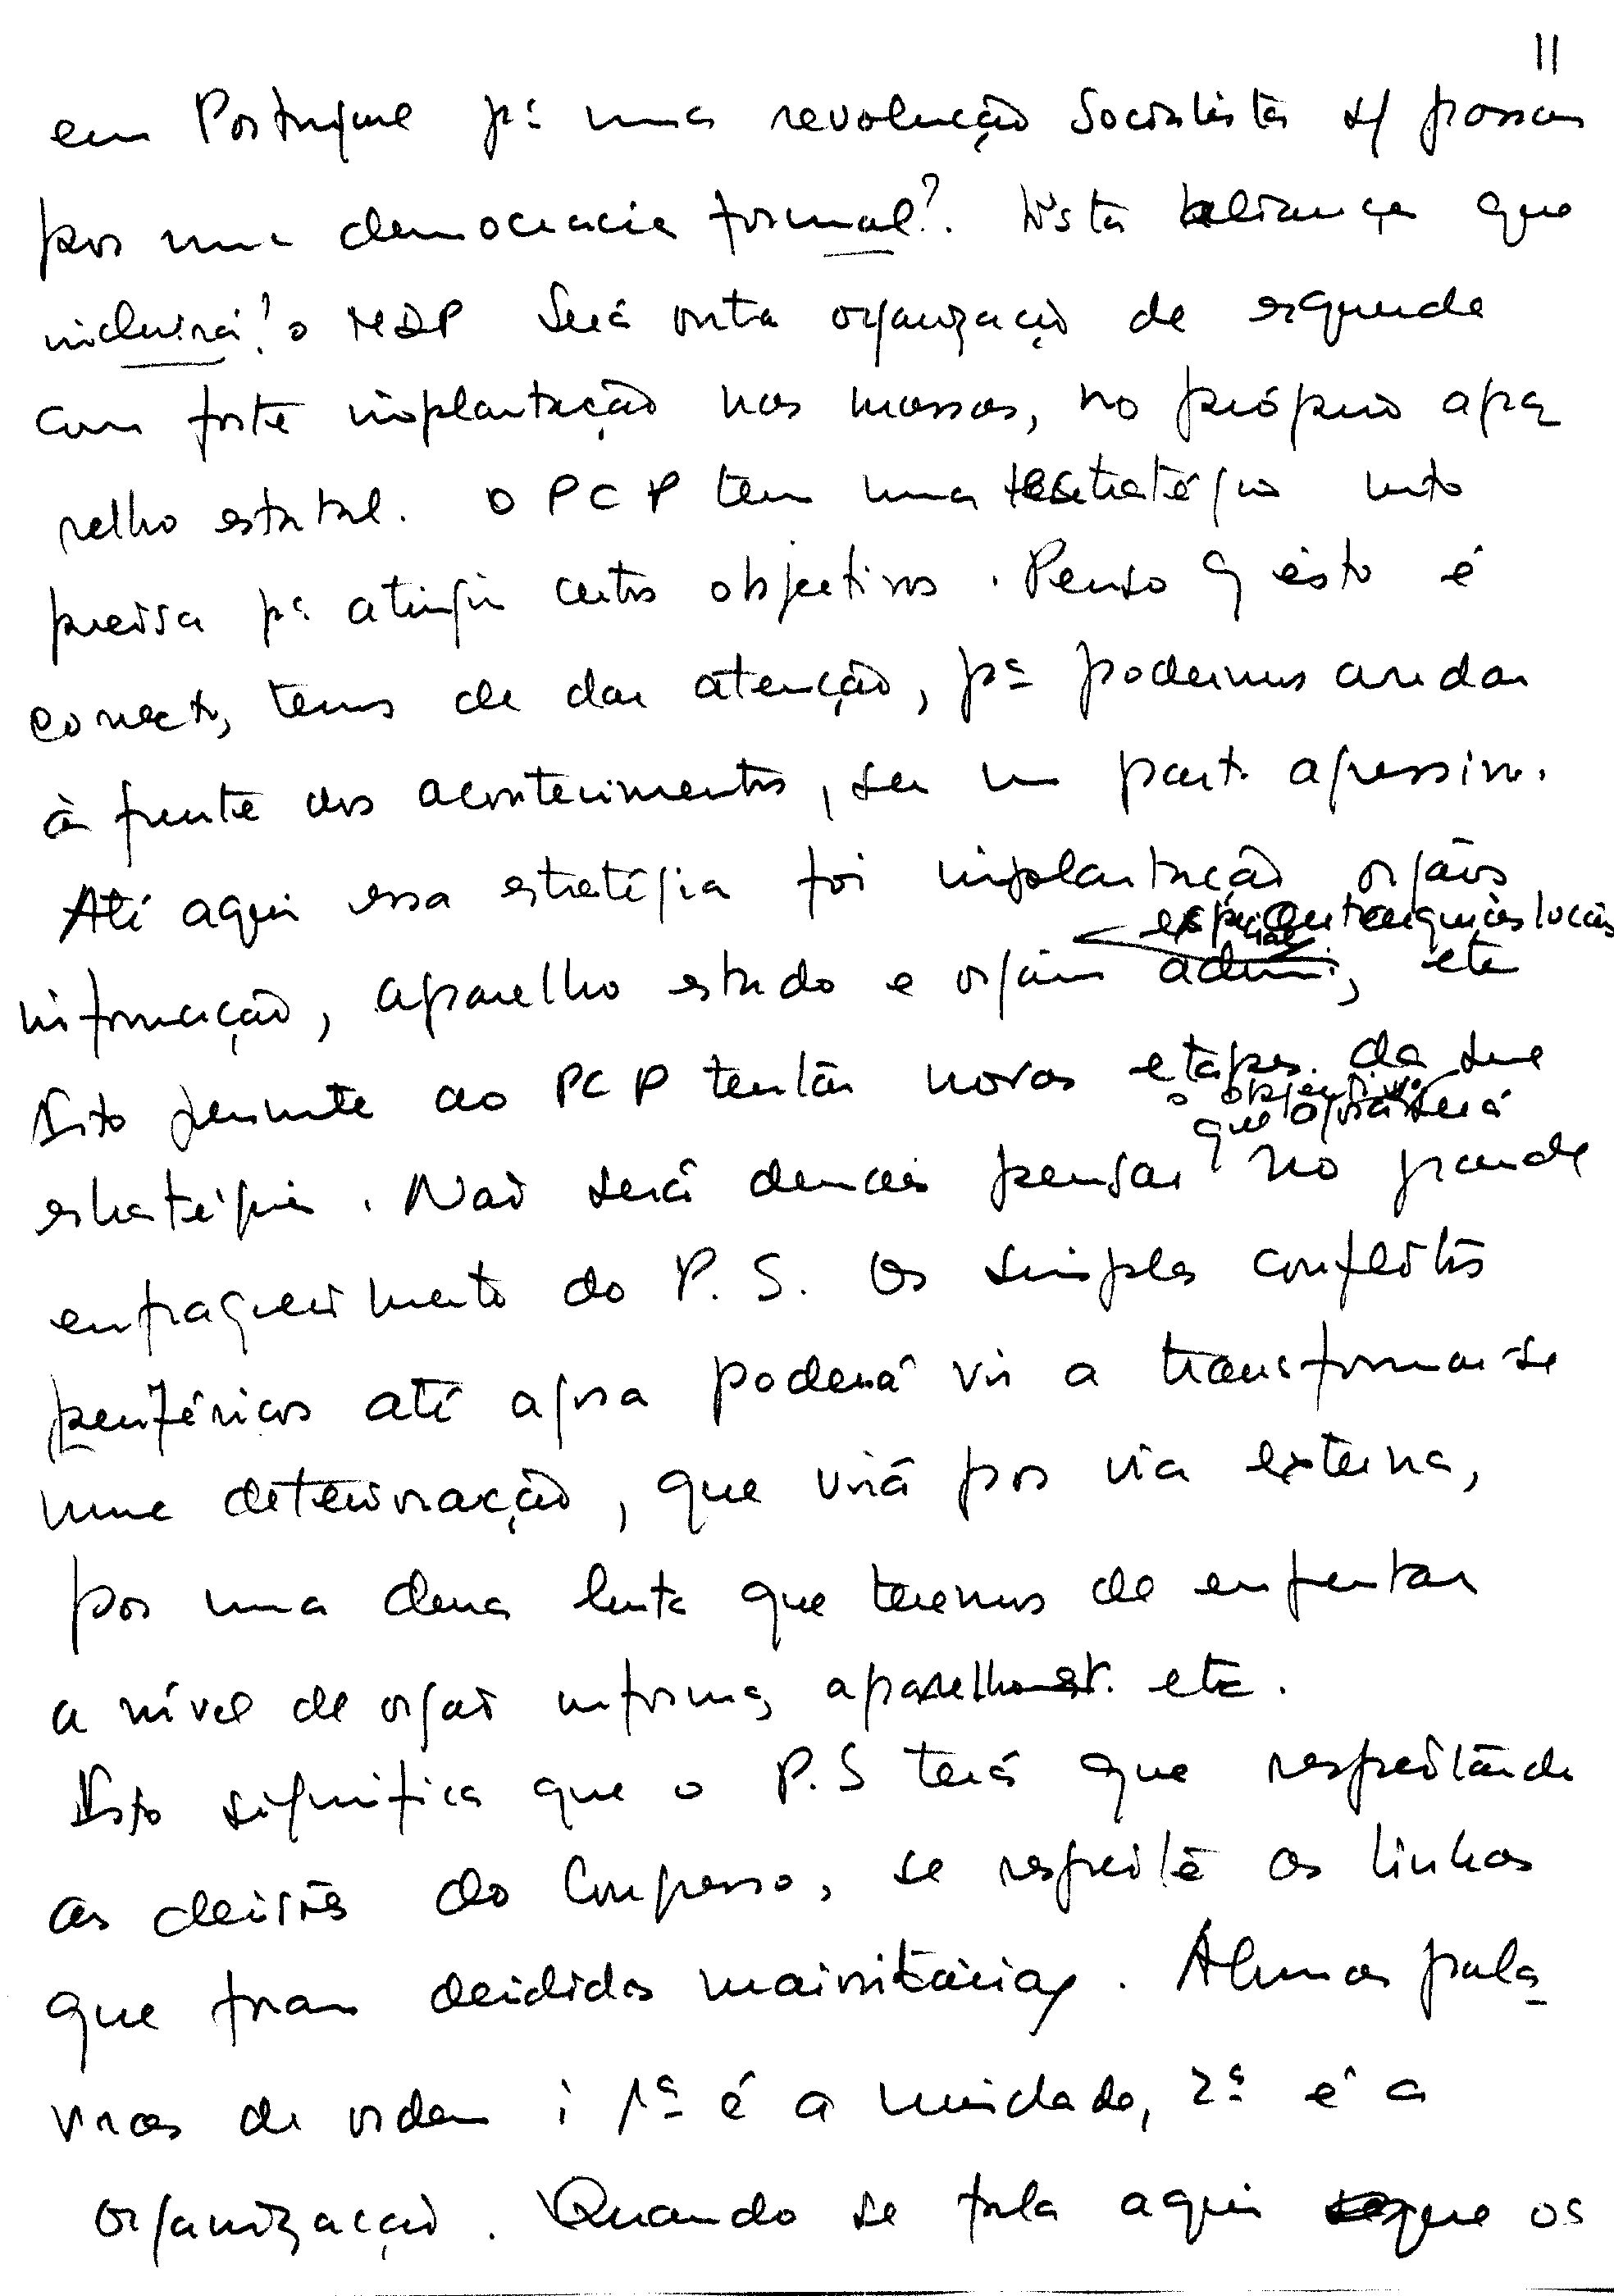 11
em Portugal pª uma revolução Socialista s/ passar
por uma democracia formal?. Nesta aliança que
incluirá? o MDP Será outra organização de esquerda
com forte implantação nas massas, no próprio apa
relho estatal. O PCP tem uma estratégia muito
precisa pª atingir certos objectivos. Penso q isto é
correcto, temos de dar atenção, pª podermos andar
à frente dos acontecimentos, ser um part. agressivo.
Até aqui essa estratégia foi implantação orgãos
especial autarquias locais
informação, aparelho estado e orgãos admi, etc
Isto permite ao PCP tentar novas etapas da sua
o objectivo
que agora será
estratégia. Não será demais pensar no grande
enfraquecimento do P.S. Os simples conflitos
periféricos até agora poderá vir a transformar-se
numa deterioração, que virá por via externa,
por uma dura luta que teremos de enfrentar
a nível de orgão informaç aparelho est. etc.
Isto significa que o P.S terá que respeitando
as decisões do Congresso, se respeite as linhas
que foram decididas maioritáriaç. Algumas pala
vras de ordem: 1ª é a unidade, 2ª é a
organização. Quando se fala aqui que os